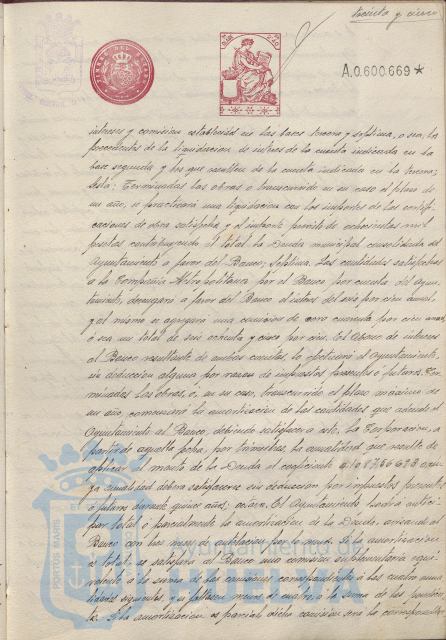 treinta y cinco
A.0.600.669*
intereses y comision establecida en las bases tercera y septima, o sea, la
procedentes de la liquidacion de interes de la cuenta indicada en la
base segunda y los que resulten de la cuenta indicada en la tercera;
Sexta; Terminadas las obras o transcurrido en su caso el plazo de
un año, se practicará una liquidacion con los importes de las certifi-
caciones de obra satisfecha y el importe previsto de ochocientas mil
pesetas constituyendo el total la Deuda municipal consolidada del
Ayuntamiento a favor del Banco; Septima. Las cantidades satisfechas
a la Compañia Metropolitana por el Banco por cuenta del Ayun-
tamiento, devengará a favor del Banco el interes del seis por cien anual,
y al mismo se agregará una comision de cero cincuenta por cien anual
ó sea un total de seis cincuenta por cien. El Abono de intereses
al Banco resultante de ambas cuentas, lo efectuará el Ayuntamiento,
sin deduccion alguna por razon de impuestos presentes ó futuros. Ter-
minadas las obras, ó, en su caso, transcurrido el plazo máximo de
un año, comenzará la amortizacion de las cantidades que adeude el
Ayuntamiento al Banco, debiendo satisfacer a este, la Corporacion, a
partir de aquella fecha, por trimestres, la anualidad que resulte de
aplicar al monto de la Deuda el coeficiente
ya anualidad deberá satisfacerse sin deduccion por impuestos presentes
ó futuros durante quince años; octava. El Ayuntamiento podrá antici-
par total ó parcialmente la amortizacion de la Deuda, avisando al
Banco con tres meses de antelacion por lo menos. Si la amortizacion
es total, se satisfará al Banco una comision suplementaria equi-
valente a la suma de las comisiones correspondientes a las cuatro anua-
lidades siguientes, ó si faltasen menos de cuatro, a la suma de las
Si la amortizacion es parcial dicha comision será la correspondien-
PORTUS MAGNIS
Ayuntamiento de